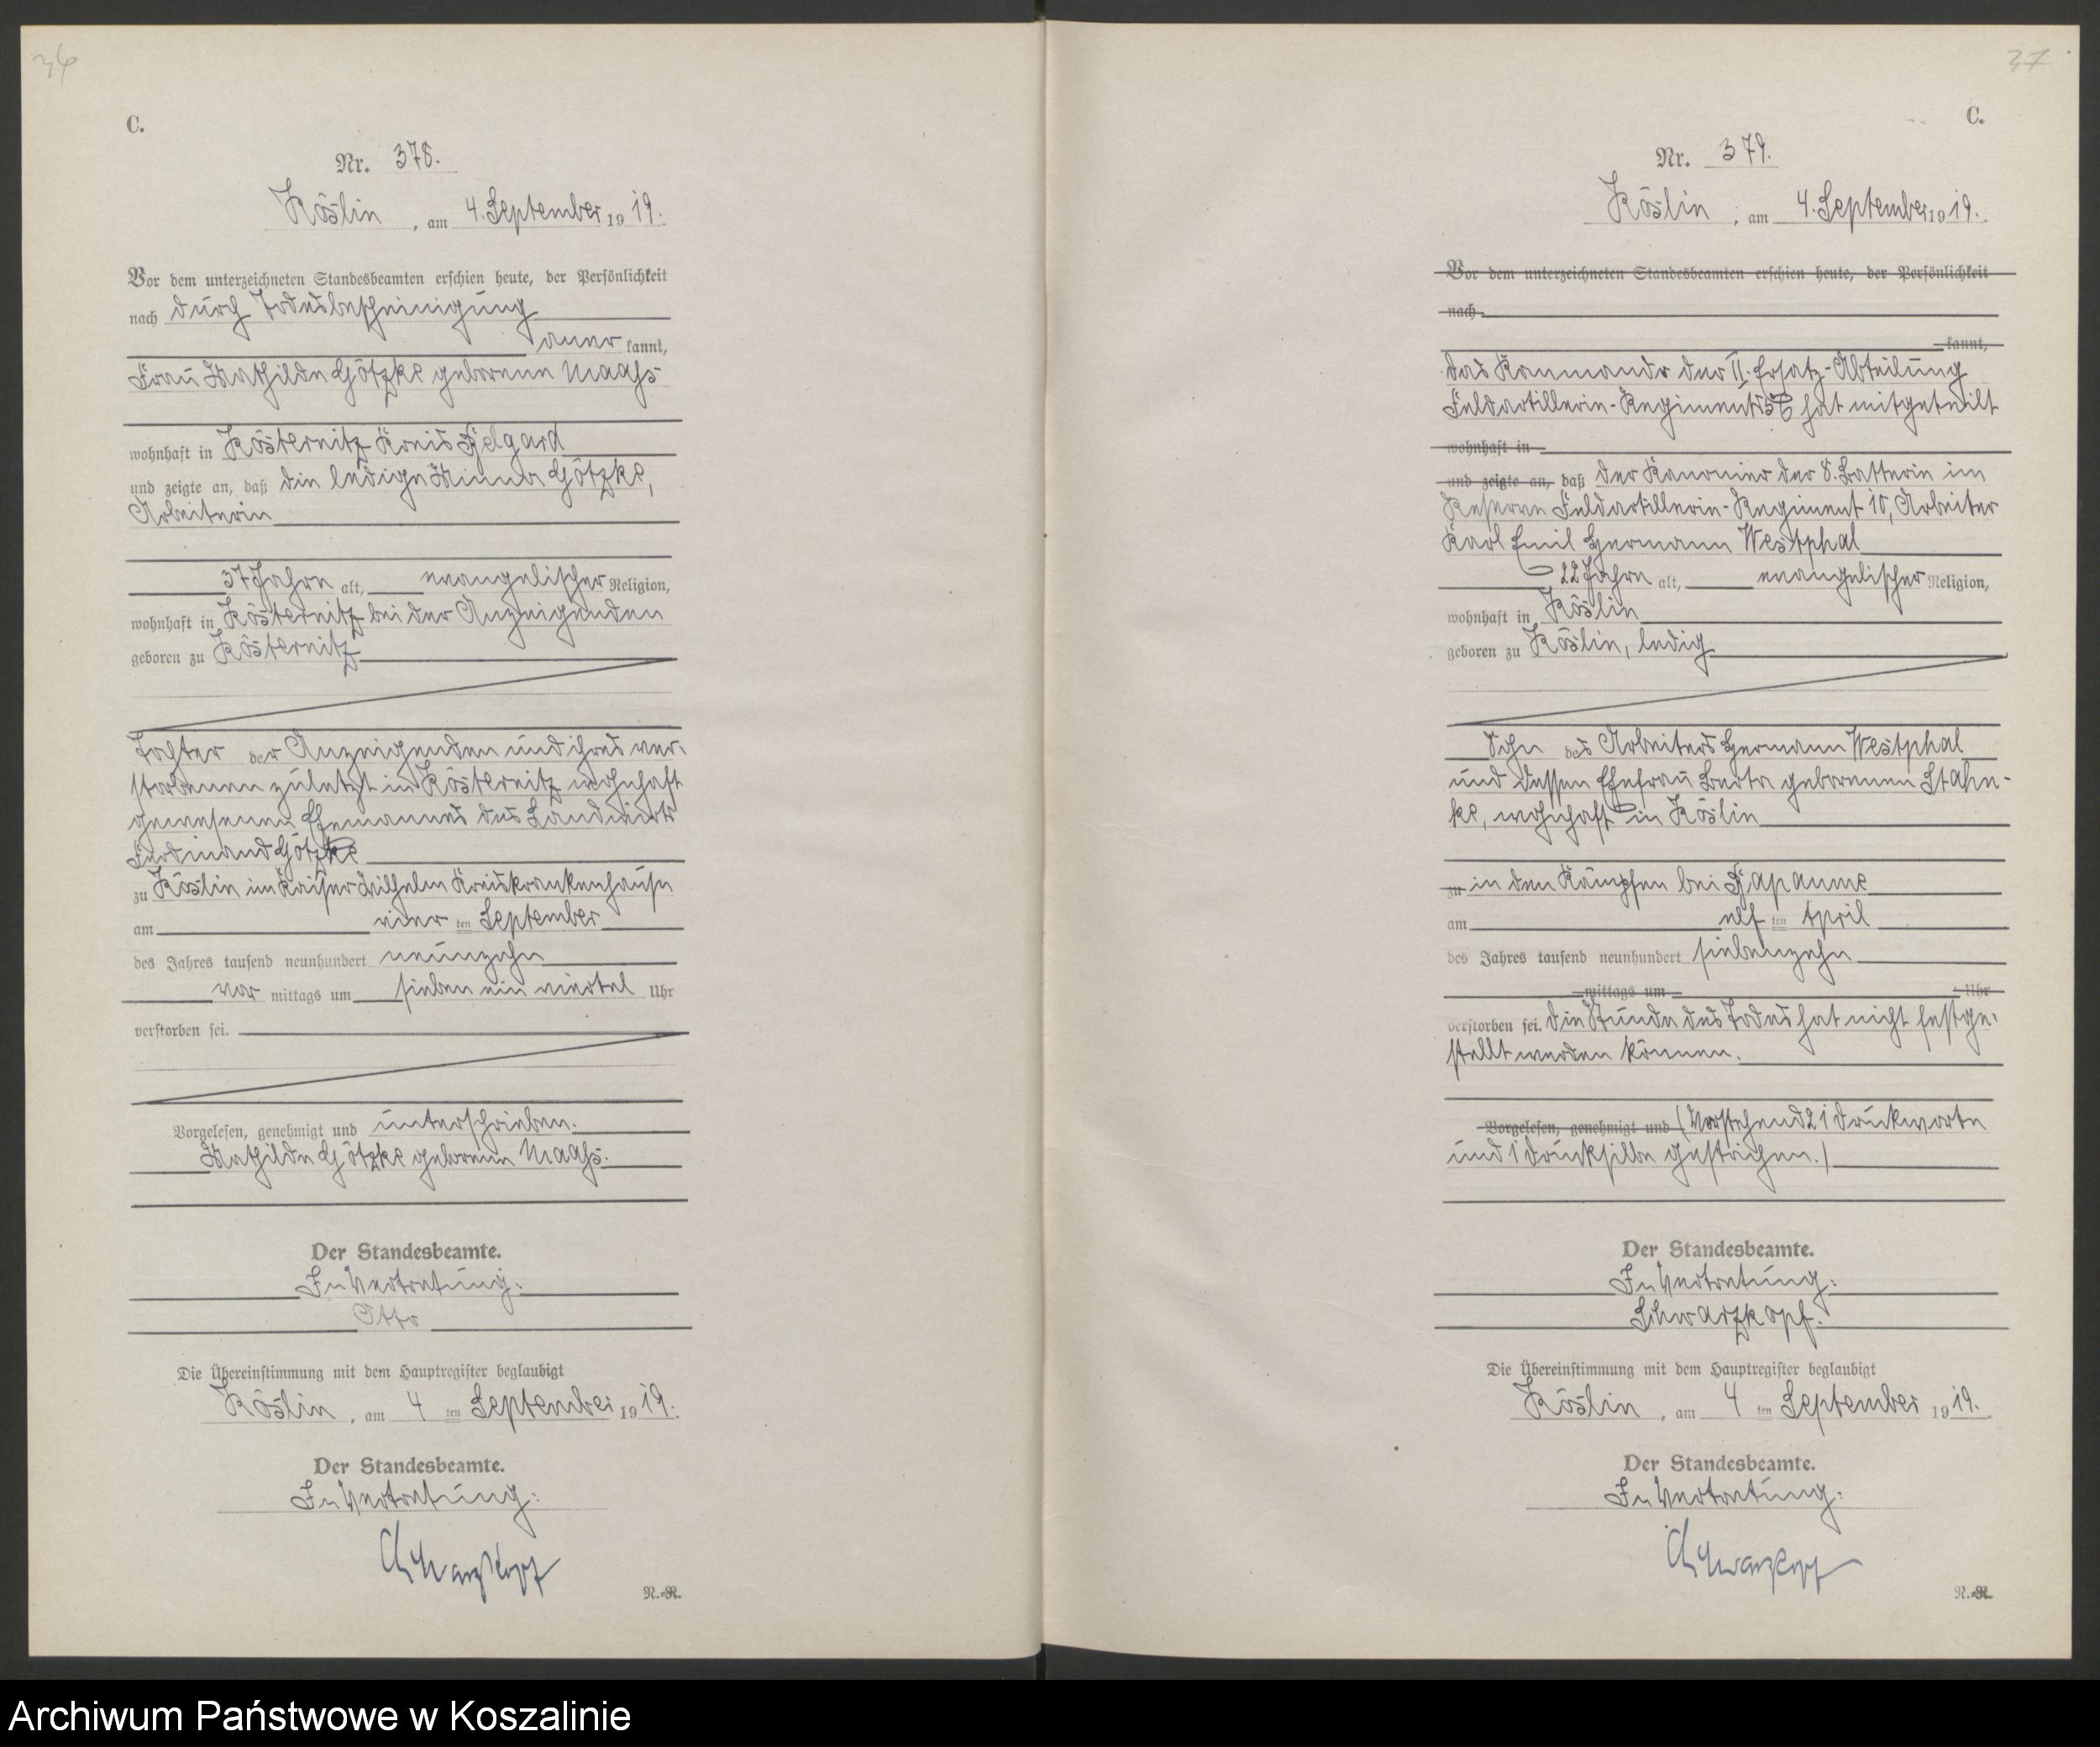 36
C.
Nr. 378.
Köslin, am 4. September 1919.
Vor dem unterzeichneten Standesbeamten erschien heute, der Persönlichkeit
nach durch Todesbescheinigung
aner kannt,
Frau Mathilde Götzke geborene Maaß
wohnhaft in Kösternitz Kreis Belgard
und zeigte an, daß die ledige Minna Götzke,
Arbeiterin
37 Jahre alt, evangelischer Religion,
wohnhaft in Kösternitz bei der Anzeigenden
geboren zu Kösternitz
Tochter der Anzeigenden und ihres ver-
storbenen zuletzt in Kösternitz wohnhaft
gewesenen Ehemannes des Landwirts
Ferdinand Götzke
zu Köslin im Kaiser Wilhelm Kreiskrankenhause
am vier ten September
des Jahres tausend neunhundert neunzehn
vor mittags um sieben ein viertel Uhr
verstorben sei.
Vorgelesen, genehmigt und unterschrieben.
Mathilde Götzke geborene Maaß.
Der Standesbeamte.
In Vertretung:
Otto
Die Übereinstimmung mit dem Hauptregister beglaubigt
Köslin, am 4 ten September 1919.
Der Standesbeamte.
In Vertretung:
Schwarzkopf
N.-R.
37
C.
Nr. 379.
Köslin, am 4. September 1919.
Vor dem unterzeichneten Standesbeamten erschien heute, der Persönlichkeit
nach
kannt,
Das Kommando der II. Ersatz-Abteilung
Feldartillerie-Regiments hat mitgeteilt
wohnhaft in
und zeigte an, daß der Kanonier der 8. Batterie im
Reserve Feldartillerie-Regiment 10, Arbeiter
Karl Emil Hermann Westphal
22 Jahre alt, evangelischer Religion,
wohnhaft in Köslin
geboren zu Köslin, ledig
Sohn des Arbeiters Hermann Westphal
und dessen Ehefrau Berta geborenen Stahn-
ke, wohnhaft in Köslin
zu in den Kämpfen bei Bapaume
am elf ten April
des Jahres tausend neunhundert siebenzehn
mittags um Uhr
verstorben sei. Die Stunde des Todes hat nicht festge-
stellt werden können.
Vorgelesen, genehmigt und (Vorstehend 21 Druckworte
und 1 Drucksilbe gestrichen.)
Der Standesbeamte.
In Vertretung:
Schwarzkopf.
Die Übereinstimmung mit dem Hauptregister beglaubigt
Köslin, am 4 ten September 1919.
Der Standesbeamte.
In Vertretung:
Schwarzkopf
N.-R.
Archiwum Państwowe w Koszalinie